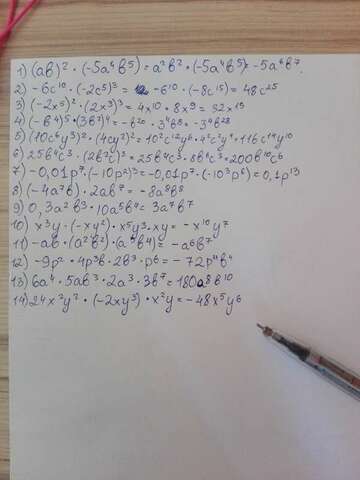 1) (ab)² · (-5a⁴b⁵) = a²b² · (-5a⁴b⁵) = -5a⁶b⁷.
2) -6c¹⁰ · (-2c⁵)³ = -6¹⁰ · (-8c¹⁵) = 48c²⁵
3) (-2x⁵)² · (2x³)³ = 4x¹⁰ · 8x⁹ = 32x¹⁹
4) (-b⁴)⁵ · (3b²)⁴ = -b²⁰ · 3⁴b⁸ = -3⁴b²⁸
5) (10c⁶y³)² · (4cy²)² = 10²c¹²y⁶ · 4²c²y⁴ = 116c¹⁴y¹⁰
6) 25b⁴c³ · (2b²c)³ = 25b⁴c³ · 8b⁶c³ = 200b¹⁰c⁶
7) -0,01p⁷ · (-10p²)³ = -0,01p⁷ · (-10³p⁶) = 0,1p¹³
8) (-4a⁷b) · 2ab⁷ = -8a⁸b⁸
9) 0,3a²b³ · 10a⁵b⁴ = 3a⁷b⁷
10) x³y · (-xy²) · x⁵y³ · xy = -x¹⁰y⁷
11) -ab · (a²b²) · (a³b⁴) = -a⁶b⁷
12) -9p² · 4p³b · 2b³ · p⁶ = -72p¹¹b⁴
13) 6a⁴ · 5ab³ · 2a³ · 3b⁷ = 180a⁸b¹⁰
14) 24x²y² · (-2xy³) · x²y = -48x⁵y⁶